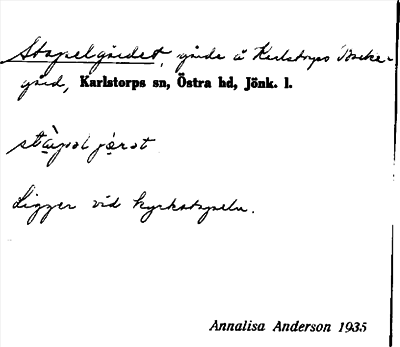 Stapelgärdet, gärde å Karlstorps
gård, Karlstorps sn, Östra hd, Jönk. l.
Ligger vid kyrkstapeln.
Annalisa Anderson 1935